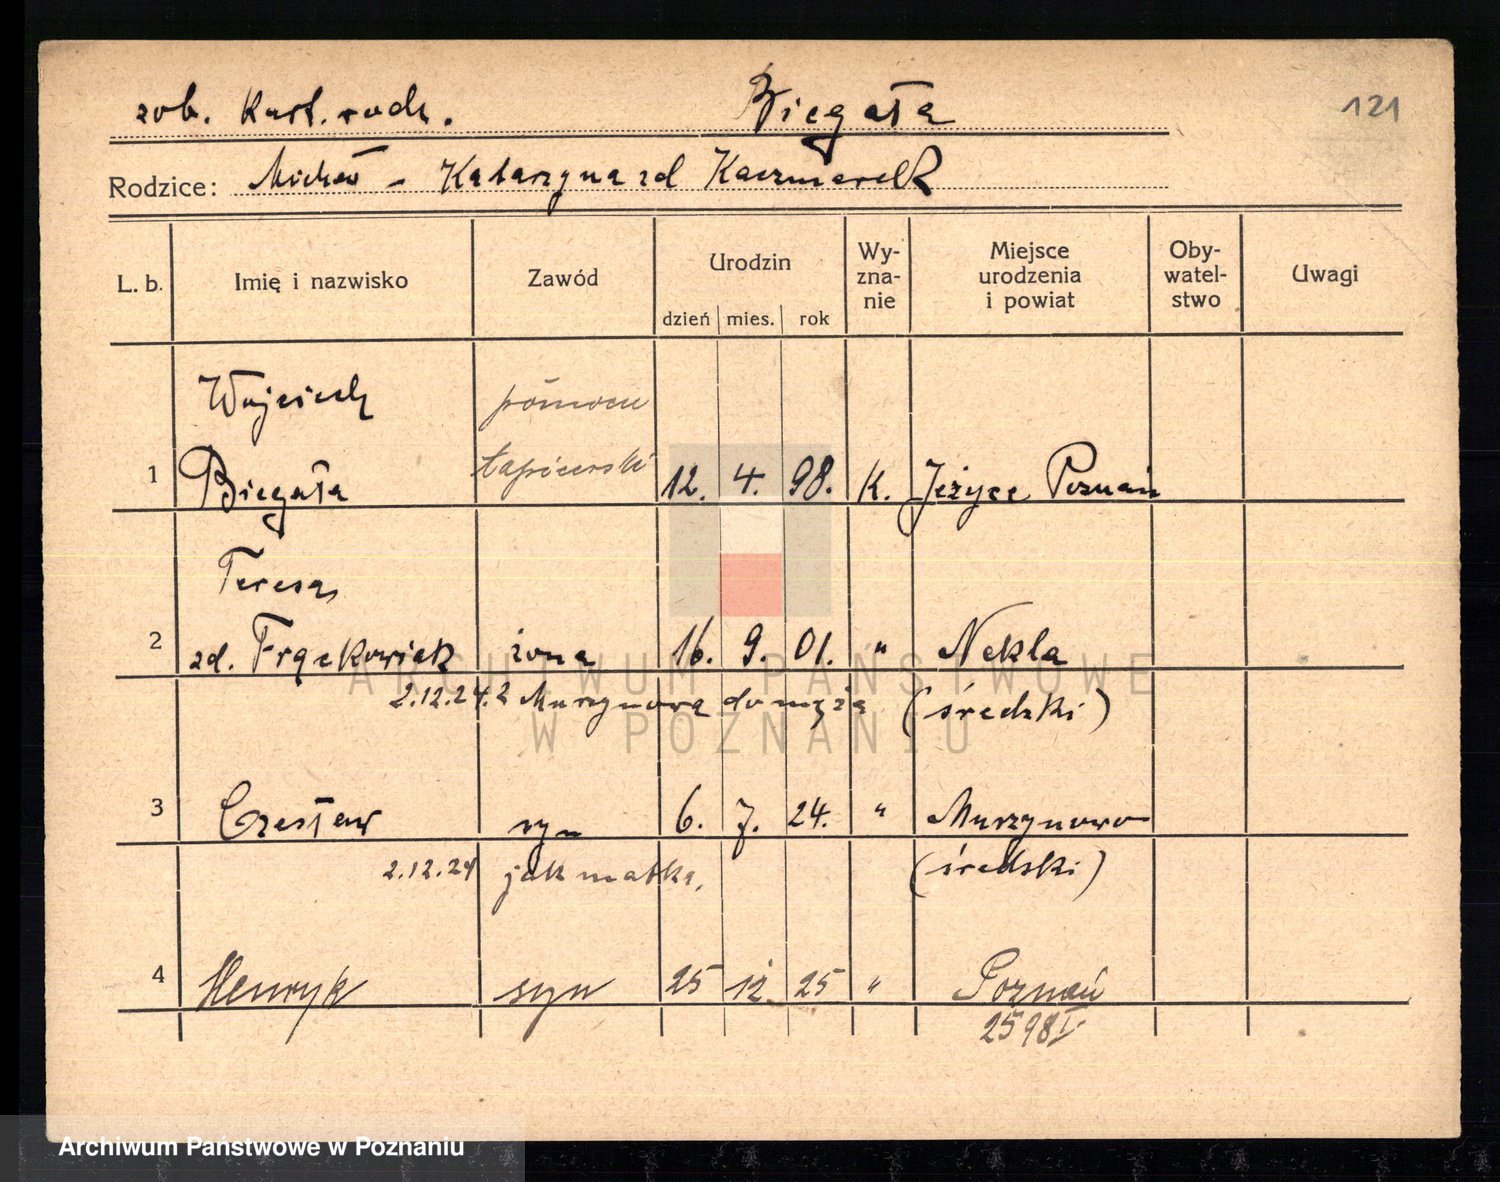 zob. Kart. rodz. Biegała 121
Rodzice: Michał - Katarzyna zd Kaczmarek
L. b. Imię i nazwisko Zawód Urodzin Wy-zna-nie Miejsce urodzenia i powiat Oby-watel-stwo Uwagi
dzień mies. rok
Wojciech pomocn
1 Biegała tapicerski 12. 4. 98. K. Jeżyce Poznań
Teresa
2 zd. Frąckowiak żona 16. 9. 01. " Nekla
2.12.24. z Murzynowa do męża (średzki)
3 Czesław syn 6. 7. 24. " Murzynowo
2.12.24 jak matka. (średzki)
4 Henryk syn 25 12 25 " Poznań
2598 V
ARCHIWUM PAŃSTWOWE
W POZNANIU
Archiwum Państwowe w Poznaniu